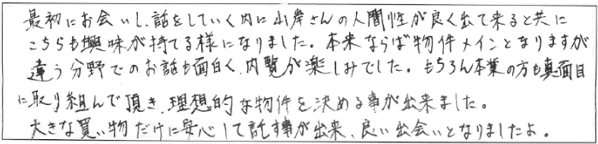 最初にお会いし、話をしていく内に山岸さんの人間性が良く出て来ると共に
こちらも興味が持てる様になりました。本来ならば物件メインとなりますが
違う分野でのお話も面白く、内覧が楽しみでした。もちろん本業の方も真面目
に取り組んで頂き、理想的な物件を決める事が出来ました。
大きな買い物だけに安心して託す事が出来、良い出会いとなりましたよ。